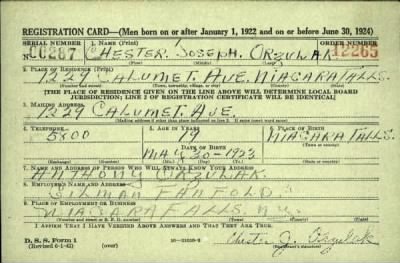 REGISTRATION CARD—(Men born on or after January 1, 1922 and on or before June 30, 1924)
SERIAL NUMBER 1. NAME (Print) ORDER NUMBER
CHESTER JOSEPH ORZULAK 12265
(First) (Middle) (Last)
2. PLACE OF RESIDENCE (Print)
1229 CALUMET AVE. NIAGARA FALLS.
(Number and street) (Town, township, village, or city) (County) (State)
[THE PLACE OF RESIDENCE GIVEN ON THE LINE ABOVE WILL DETERMINE LOCAL BOARD
JURISDICTION; LINE 2 OF REGISTRATION CERTIFICATE WILL BE IDENTICAL]
3. MAILING ADDRESS
1229 CALUMET AVE.
[Mailing address if other than place indicated on line 2. If same, insert word same]
4. TELEPHONE 5. AGE IN YEARS 6. PLACE OF BIRTH
5800 19 NIAGARA FALLS.
DATE OF BIRTH
MAY 30-1923
(Exchange) (Number) (Mo.) (Day) (Yr.) (State or country)
7. NAME AND ADDRESS OF PERSON WHO WILL ALWAYS KNOW YOUR ADDRESS
ANTHONY ORZULAK
8. EMPLOYER'S NAME AND ADDRESS
FANFOLD
9. PLACE OF EMPLOYMENT OR BUSINESS
NIAGARA FALLS, N.Y.
(Number and street or R. F. D. number) (Town) (County) (State)
I AFFIRM THAT I HAVE VERIFIED ABOVE ANSWERS AND THAT THEY ARE TRUE.
D. S. S. Form 1
(Revised 6-1-42) (over) Chester J. Orzulak